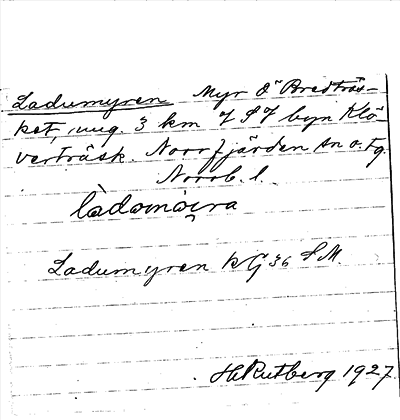 Ladumyren Myr Ö Bredträs-
ket, ung. 3 km VSV byn Klö-
verträsk. Norrfjärden sn o. tg.
Norrb. l.
làdomò̭ira
Ladumyren k G 36 SM.
H. Rutberg 1927